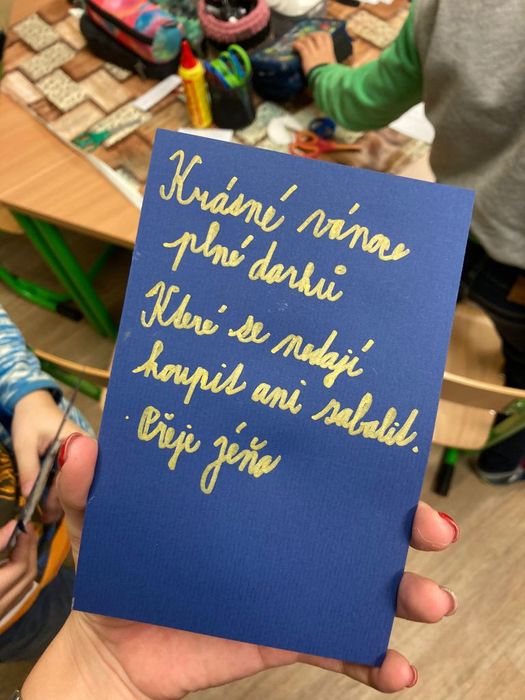 Krásné vánoce
plné darků
Které se nedají
koupit ani sabalit.
Přeje jéňa